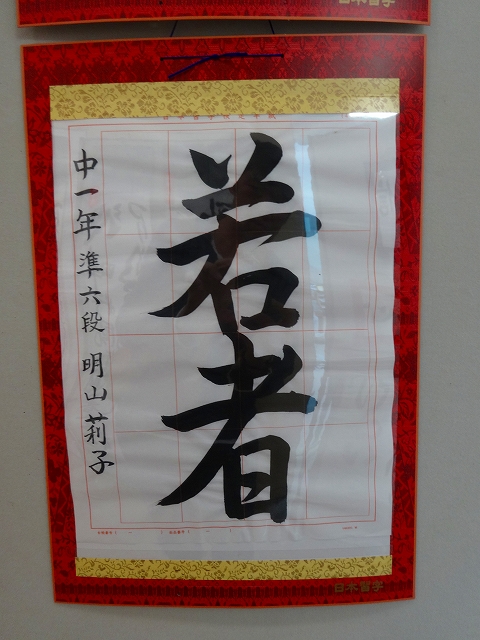 日本習字
若者
中一年 準六段 明山莉子
日本習字